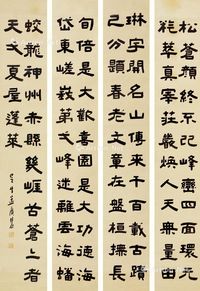 松蒼終不記巒四面環元
氣萃真宰莊嚴煥人天無量由
琳宇開名山傳來千百載古蹟
已分題春老文章在盤桓長
旬倍是大歡喜園是大功德海
岱東嵯峨第峰雲海蟠
蛟龍神州赤縣幾崖古蒼上者
天文夏屋蓬萊